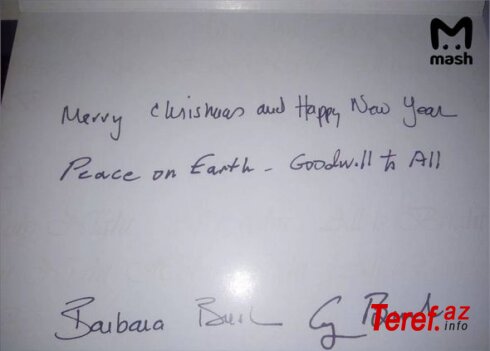 mash
Merry Christmas and Happy New Year
Peace on Earth - Goodwill to All
Barbara Bush
Teref.az
info